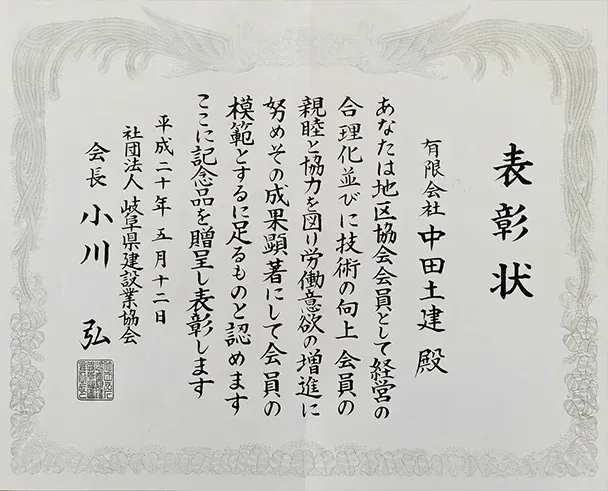 表彰状
有限会社 中田土建 殿
あなたは地区協会会員として経営の
合理化並びに技術の向上 会員の
親睦と協力を図り労働意欲の増進に
努めその成果顕著にして会員の
模範とするに足るものと認めます
ここに記念品を贈呈し表彰します
平成二十年 五月十二日
社団法人 岐阜県建設業協会
会長 小川 弘